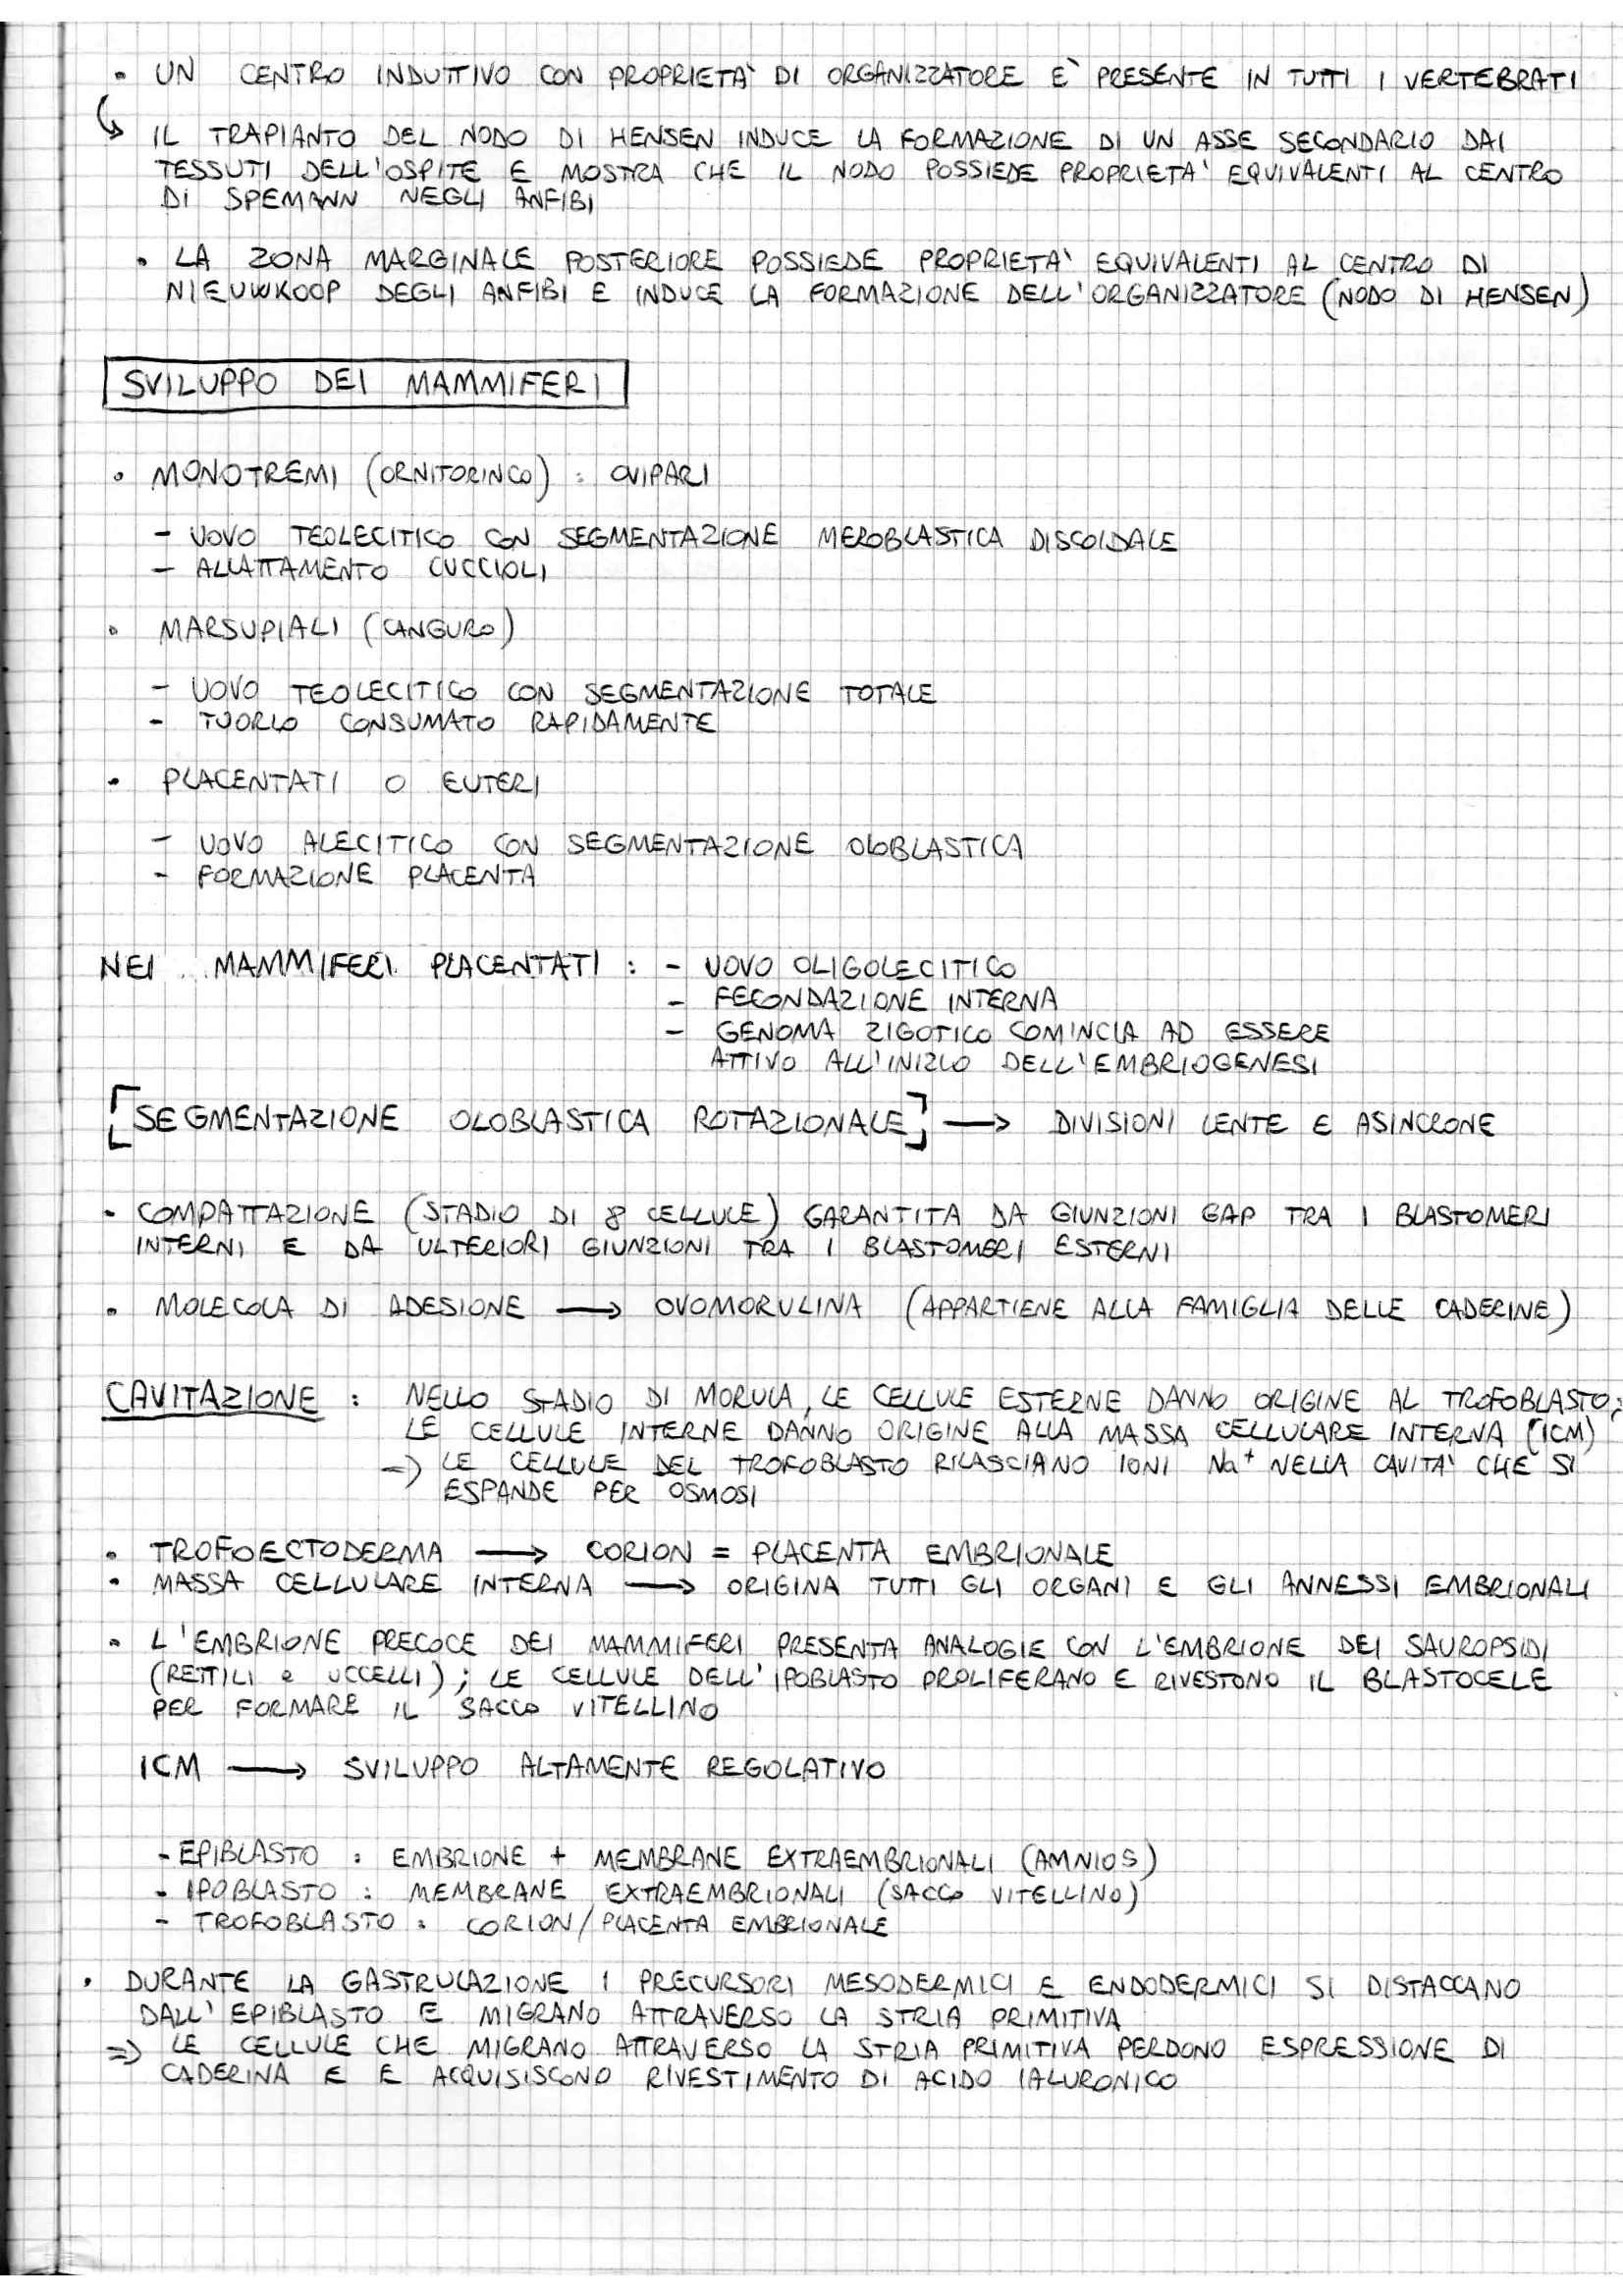 • UN CENTRO INDUTTIVO CON PROPRIETA' DI ORGANIZZATORE E' PRESENTE IN TUTTI I VERTEBRATI
↳ IL TRAPIANTO DEL NODO DI HENSEN INDUCE LA FORMAZIONE DI UN ASSE SECONDARIO DAI
TESSUTI DELL'OSPITE E MOSTRA CHE IL NODO POSSIEDE PROPRIETA' EQUIVALENTI AL CENTRO
DI SPEMANN NEGLI ANFIBI
• LA ZONA MARGINALE POSTERIORE POSSIEDE PROPRIETA' EQUIVALENTI AL CENTRO DI
NIEUWKOOP DEGLI ANFIBI E INDUCE LA FORMAZIONE DELL'ORGANIZZATORE (NODO DI HENSEN)
SVILUPPO DEI MAMMIFERI
• MONOTREMI (ORNITORINCO) : OVIPARI
- UOVO TEOLECITICO CON SEGMENTAZIONE MEROBLASTICA DISCOIDALE
- ALLATTAMENTO CUCCIOLI
• MARSUPIALI (CANGURO)
- UOVO TEOLECITICO CON SEGMENTAZIONE TOTALE
- TUORLO CONSUMATO RAPIDAMENTE
• PLACENTATI O EUTERI
- UOVO ALECITICO CON SEGMENTAZIONE OLOBLASTICA
- FORMAZIONE PLACENTA
NEI MAMMIFERI PLACENTATI : - UOVO OLIGOLECITICO
- FECONDAZIONE INTERNA
- GENOMA ZIGOTICO COMINCIA AD ESSERE
ATTIVO ALL'INIZIO DELL'EMBRIOGENESI
[SEGMENTAZIONE OLOBLASTICA ROTAZIONALE] → DIVISIONI LENTE E ASINCRONE
• COMPATTAZIONE (STADIO DI 8 CELLULE) GARANTITA DA GIUNZIONI GAP TRA I BLASTOMERI
INTERNI E DA ULTERIORI GIUNZIONI TRA I BLASTOMERI ESTERNI
• MOLECOLA DI ADESIONE → OVOMORULINA (APPARTIENE ALLA FAMIGLIA DELLE CADERINE)
CAVITAZIONE : NELLO STADIO DI MORULA, LE CELLULE ESTERNE DANNO ORIGINE AL TROFOBLASTO;
LE CELLULE INTERNE DANNO ORIGINE ALLA MASSA CELLULARE INTERNA (ICM)
⇒ LE CELLULE DEL TROFOBLASTO RILASCIANO IONI Na⁺ NELLA CAVITA' CHE SI
ESPANDE PER OSMOSI
• TROFOECTODERMA → CORION = PLACENTA EMBRIONALE
• MASSA CELLULARE INTERNA → ORIGINA TUTTI GLI ORGANI E GLI ANNESSI EMBRIONALI
• L'EMBRIONE PRECOCE DEI MAMMIFERI PRESENTA ANALOGIE CON L'EMBRIONE DEI SAUROPSIDI
(RETTILI e UCCELLI) ; LE CELLULE DELL'IPOBLASTO PROLIFERANO E RIVESTONO IL BLASTOCELE
PER FORMARE IL SACCO VITELLINO
ICM → SVILUPPO ALTAMENTE REGOLATIVO
- EPIBLASTO : EMBRIONE + MEMBRANE EXTRAEMBRIONALI (AMNIOS)
- IPOBLASTO : MEMBRANE EXTRAEMBRIONALI (SACCO VITELLINO)
- TROFOBLASTO : CORION/PLACENTA EMBRIONALE
• DURANTE LA GASTRULAZIONE I PRECURSORI MESODERMICI E ENDODERMICI SI DISTACCANO
DALL'EPIBLASTO E MIGRANO ATTRAVERSO LA STRIA PRIMITIVA
⇒ LE CELLULE CHE MIGRANO ATTRAVERSO LA STRIA PRIMITIVA PERDONO ESPRESSIONE DI
CADERINA E E ACQUISISCONO RIVESTIMENTO DI ACIDO IALURONICO